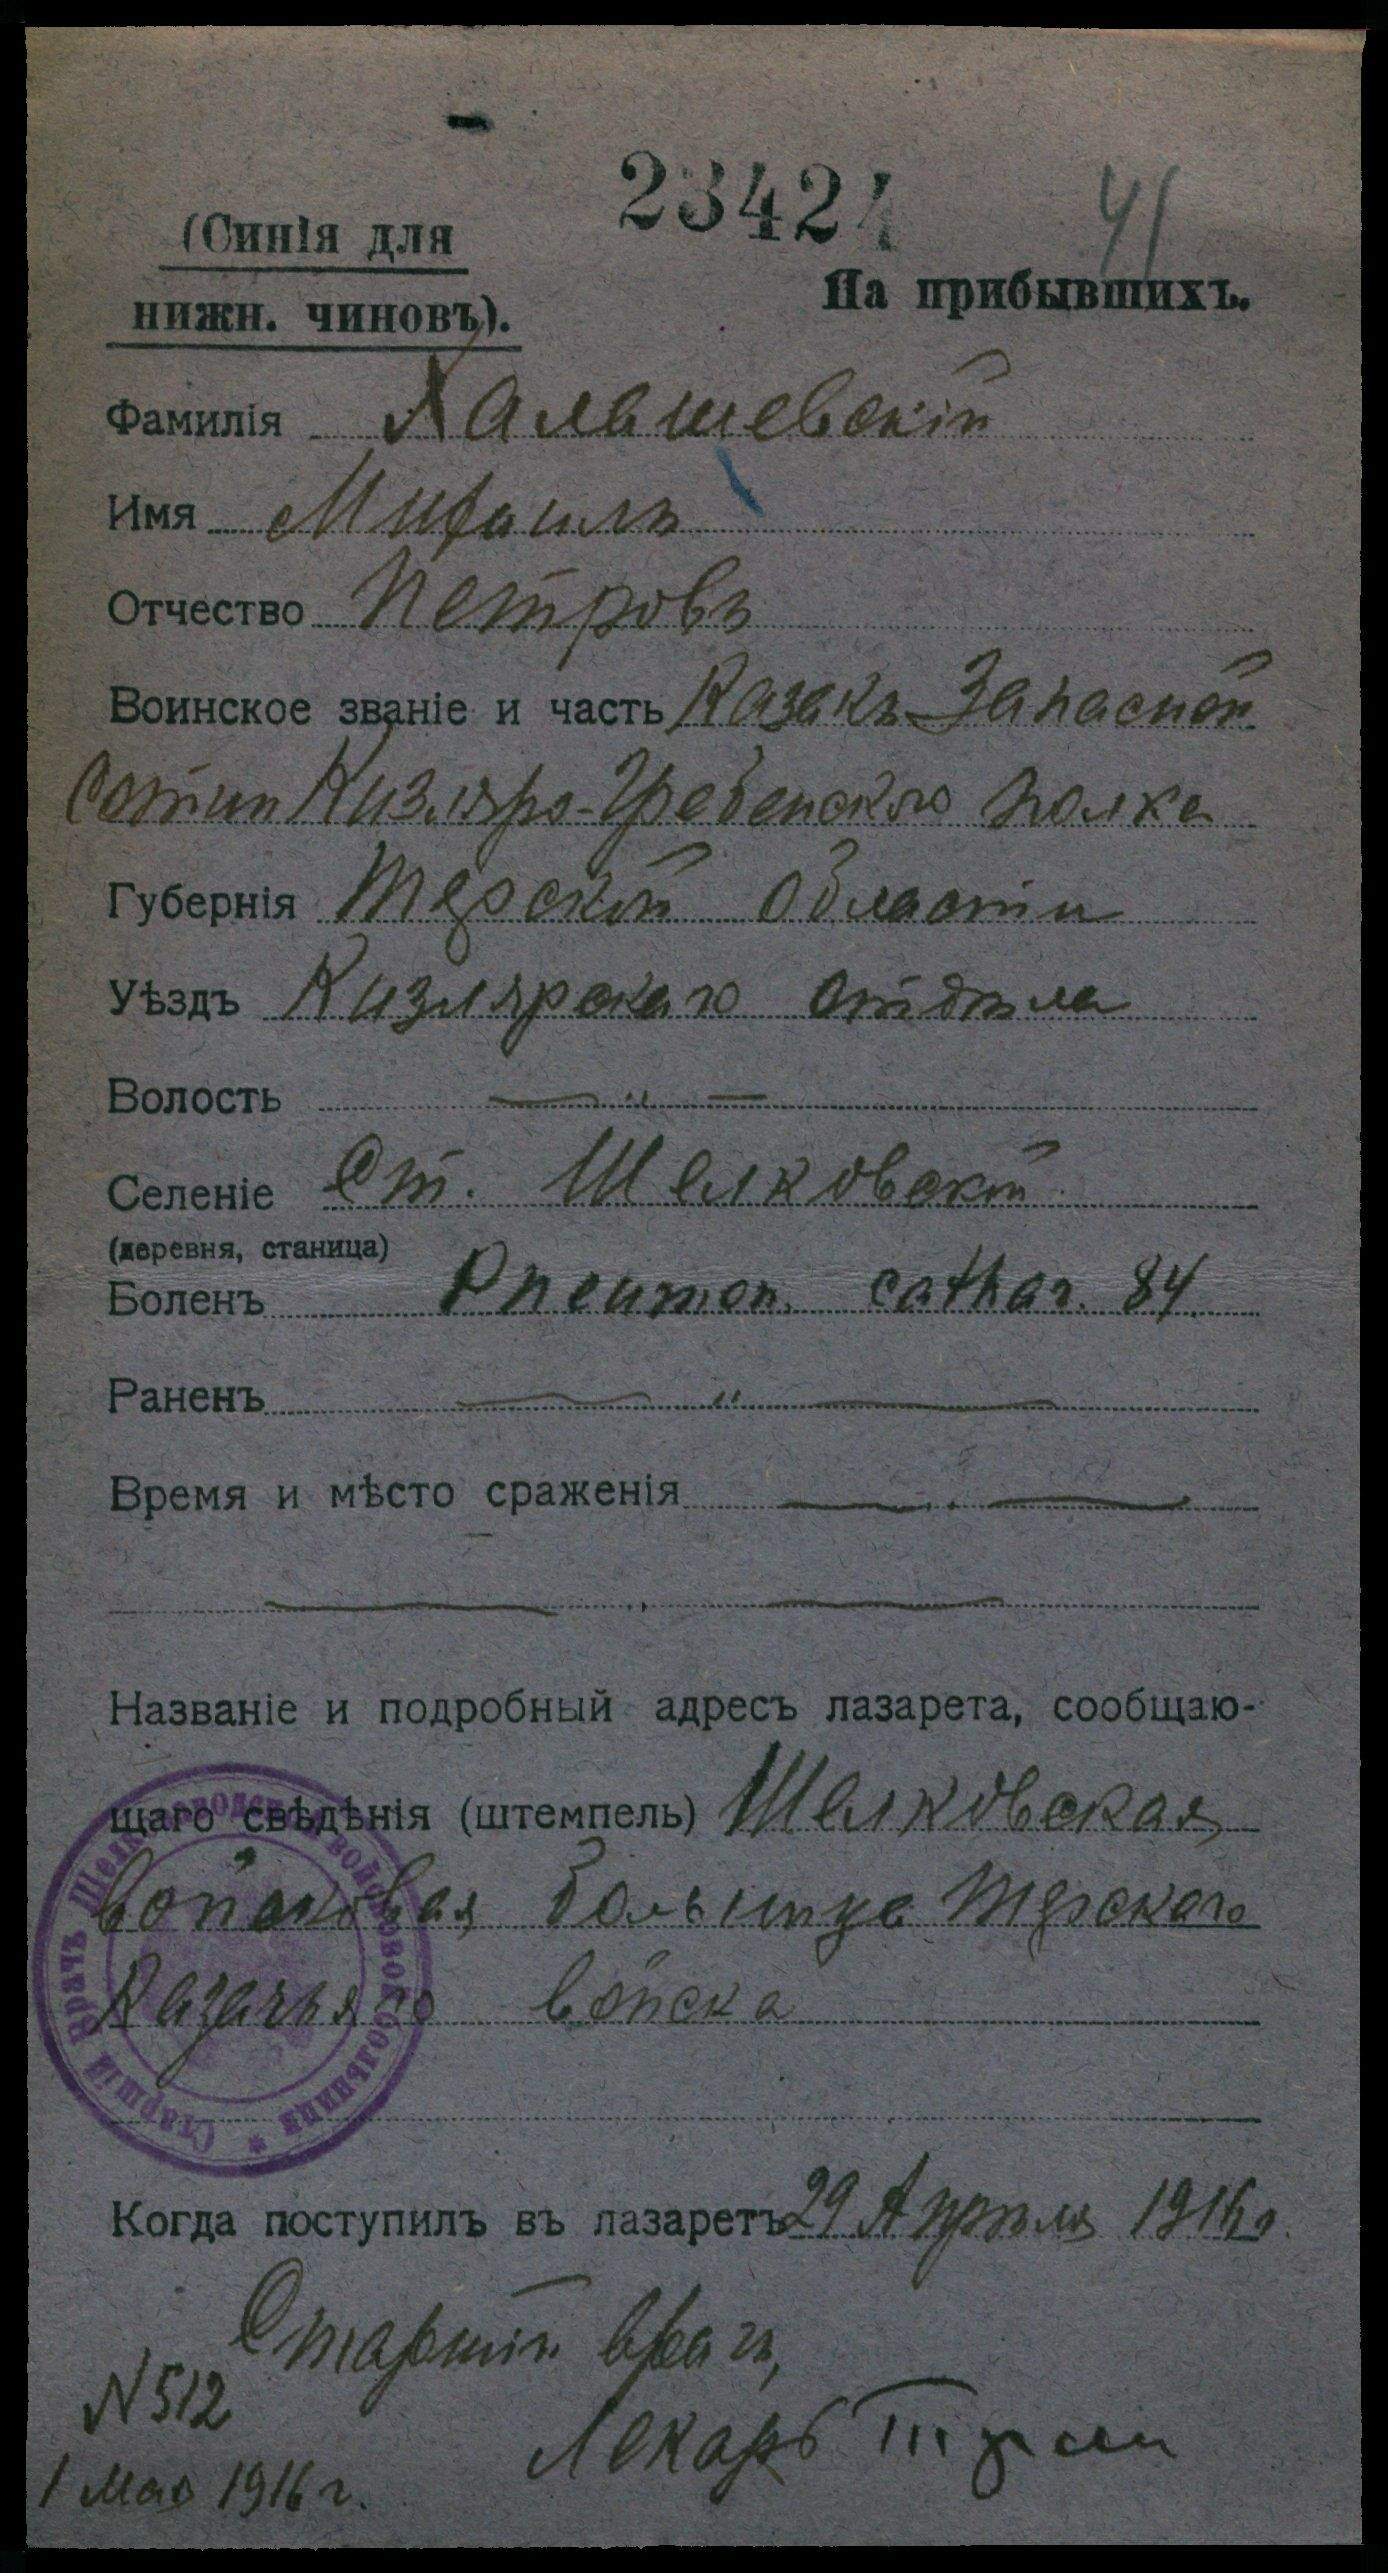 23424
41
(Синія для
нижн. чиновъ).
На прибывшихъ.
Фамилія Хальшевскій
Имя Михаилъ
Отчество Петровъ
Воинское званіе и часть Казакъ Запасной
Сотни Кизляро-Гребенского полка
Губернія Терской Области
Уѣздъ Кизлярскаго отдѣла
Волость — „ —
Селеніе Ст. Шелковской
(деревня, станица)
Боленъ Pneumon. cathar. 84.
Раненъ — „ —
Время и мѣсто сраженія
Названіе и подробный адресъ лазарета, сообщаю-
щаго свѣдѣнія (штемпель) Шелковская
войсковая больница Терскаго
Казачьяго войска
Старшій Врачъ Шелкозаводской войсковой больницы *
Когда поступилъ въ лазаретъ 29 Апрѣля 1916 г.
Старшій врачъ,
N 512
Лекарь
1 Мая 1916 г.